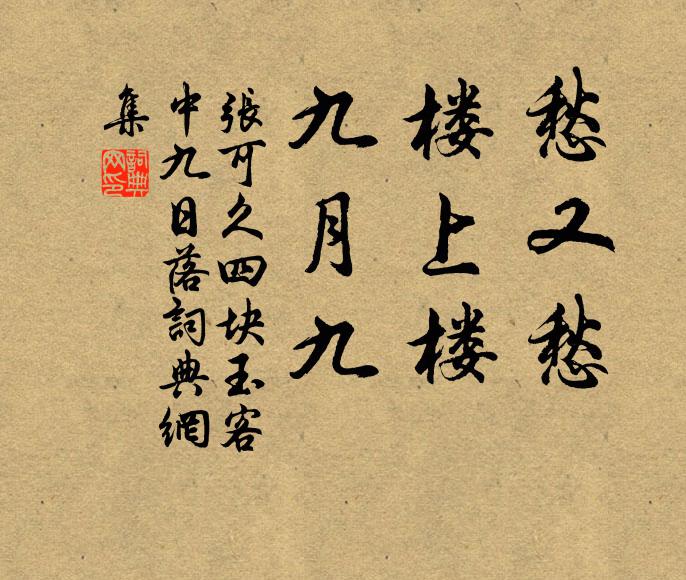 愁又愁
楼上楼
九月九
張可久四块玉客
中九日落詞典網
集
詞典
网印